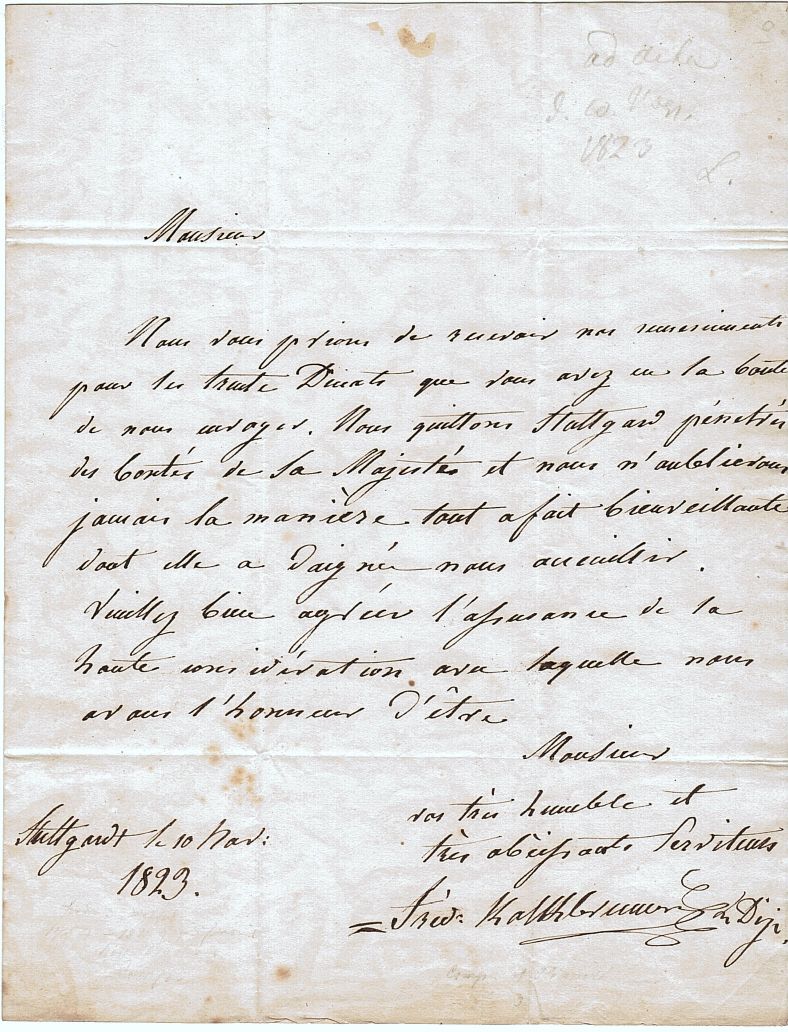 1823
L.
Monsieur
Nous vous prions de recevoir nos remerciments
pour les trente Ducats que vous avez eu la bonté
de nous envoyer. Nous quittons Stuttgard pénétrés
des bontés de Sa Majestés et nous n'oublierons
jamais la manière tout a fait bienveillante
dont elle a daignée nous aceuillir.
Veuillez bien agréer l'assurance de la
haute considération avec laquelle nous
avons l'honneur d'être
Monsieur
vos très humble et
très obéissants Serviteurs
Stuttgardt le 10 Nov:
1823.
Fréd: Kalkbrenner